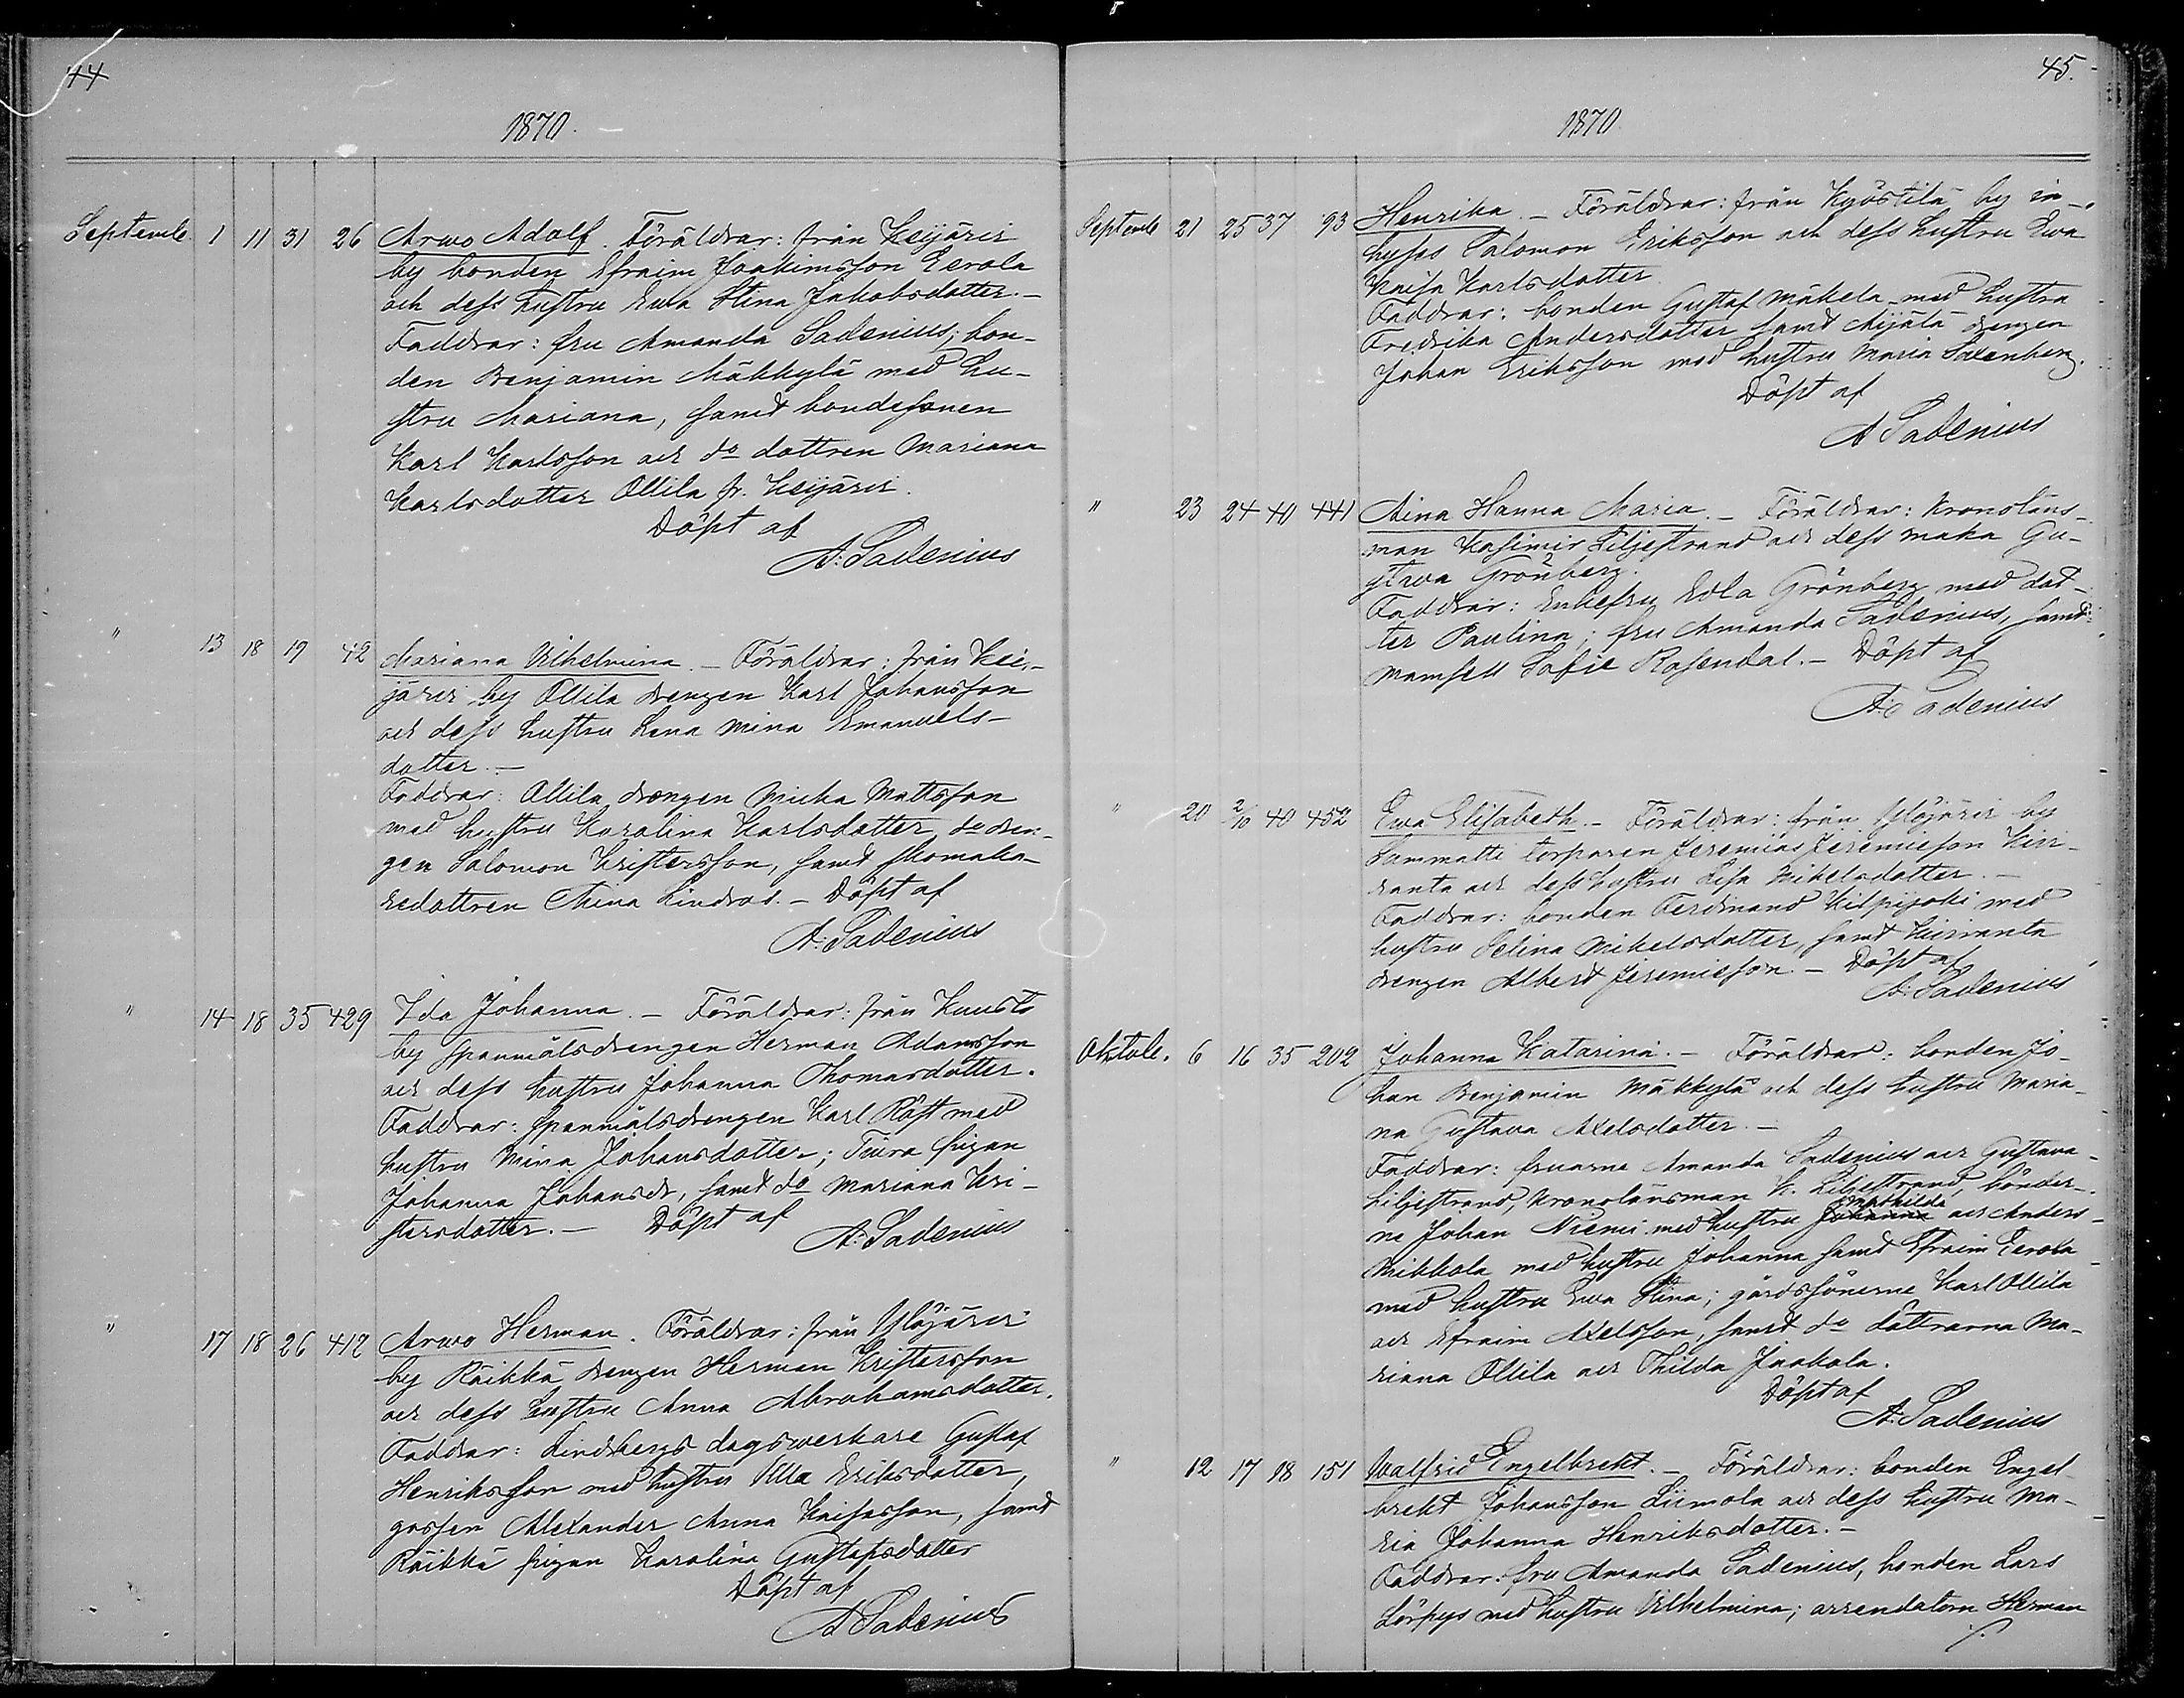 44
1870.
Septembe. 1 11 31 26 Arwo Adolf. Föräldrar: från Keijäris
by bonden Efraim Joakimsson Eerola
och dess hustru Ewa Stina Jakobsdotter.-
Faddrar: fru Amanda Sadenius; bon-
den Benjamin Mäkkylä med hu-
stru Mariana, samt bondesonen
Karl Karlsson och do dottren Mariana
Karlsdotter Ollila fr. Keijäris.
Döpt af
A. Sadenius
" 13 18 19 42 Mariana Vilhelmina. - Föräldrar: från Kei-
järis by Ollila drengen Karl Johansson
och dess hustru Lena Mina Emanuels-
dotter. -
Faddrar: Ollila drengen Micka Mattsson
med hustru Karolina Karlsdotter, do dren-
gen Salomon Kristersson, samt skomaka-
redottren Mina Lindros. - Döpt af
A. Sadenius
" 14 18 35 429 Ida Johanna. - Föräldrar: från Kuusto
by spanmålsdrengen Herman Adamsson
och dess hustru Johanna Thomasdotter.
Faddrar: spanmålsdrengen Karl Röst med
hustru Mina Johansdotter; pigan
Johanna Johansdr, samt do Mariana Kri-
stersdotter. - Döpt af
A. Sadenius
" 17 18 26 412 Arwo Herman. Föräldrar: från Ylöjärvi
by Räikkä drengen Herman Kristersson
och dess hustru Anna Abrahamsdotter.
Faddrar: Lindbergs dagswerkare Gustaf
Henriksson med hustru Ulla Eriksdotter,
gossen Alexander Anna Kaisasson, samt
Räikkä pigan Karolina Gustafsdotter
Döpt af
A Sadenius
45.
1870.
Septembe 21 25 37 93 Henrika. - Föräldrar: från Kyöstilä by in-
hyses Salomon Eriksson och dess hustru Ewa
Kaisa Karlsdotter
Faddrar: bonden Gustaf Mäkelä med hustru
Fredrika Andersdotter samt drengen
Johan Eriksson med hustru Maria Saxenberg.
Döpt af
A Sadenius
" 23 24 40 441 Aina Hanna Maria. - Föräldrar: Kronoläns-
man Kasimir Liljestrand och dess maka Gu-
stava Grönberg.
Faddrar: Enkefru Edla Grönberg med dot-
ter Paulina; fru Amanda Sadenius, samt
mamsell Sofie Rosendal. - Döpt af
A. Sadenius
" 20 2/10 40 452 Ewa Elisabeth. - Föräldrar: från Ylöjärvi by
Lammatti torparen Jeremias Jeremiesson Kiri-
ranta och dess hustru Lisa Mikelsdotter. -
Faddrar: bonden Ferdinand Kilpijoki med
hustru Selina Mikelsdotter, samt Kiviranta
drengen Albert Jeremiesson. - Döpt af
A. Sadenius
Oktobe. 6 16 35 202 Johanna Katarina. - Föräldrar: bonden Jo-
han Benjamin Mäkkylä och dess hustru Maria-
na Gustava Axelsdotter. -
Faddrar: fruarna Amanda Sadenius och Gustava
Liljestrand, Kronolänsman K. Liljestrand, bönder-
ne Johan Niemi med hustru Johanna Mathilda och Anders
Mikkola med hustru Johanna samt Efraim Eerola
med hustru Ewa Stina; gårdssönerne Karl Ollila
och Efraim Axelsson, samt do döttrarna Ma-
riana Ollila och Thilda Jaakola.
Döpt af
A. Sadenius
" 12 17 18 151 Walfrid Engelbrekt. - Föräldrar: bonden Engel-
brekt Johansson Liimola och dess hustru Ma-
ria Johanna Henriksdotter. -
Faddrar: fru Amanda Sadenius, bonden Lars
Lörpys med hustru Vilhelmina; arrendatorn Herman
./.